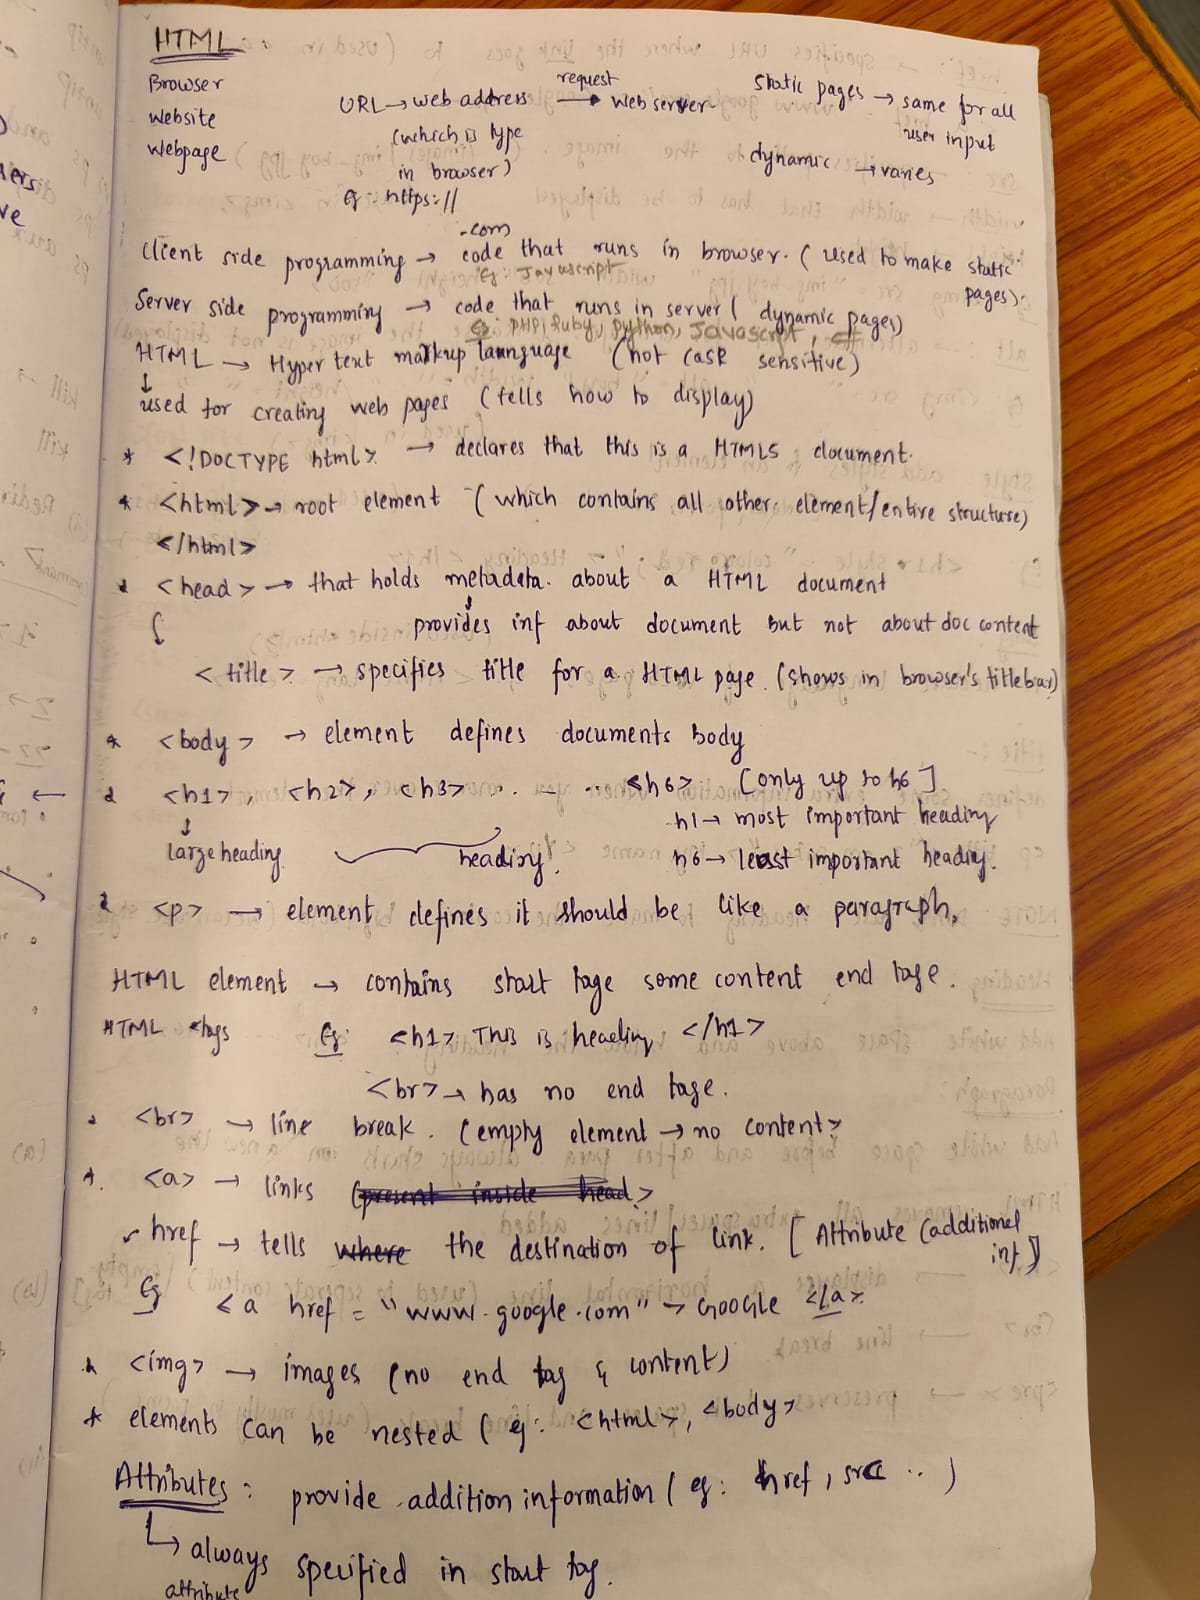 HTML :
Browser
Website
Webpage
URL → web address request → web server
(which is type
in browser)
Eg : https://
.com
static pages → same for all
user input
dynamic → varies
Client side programming → code that runs in browser. ( used to make static
pages).
Eg : Javascript
Server side programming → code that runs in server ( dynamic pages)
Eg : PHP, Ruby, python, Javascript, c#
HTML → Hyper text markup lannguage (not case sensitive)
↓
used for creating web pages (tells how to display)
* <!DOCTYPE html> → declares that this is a HTML5 document.
* <html> → root element ( which contains all other element/entire structure)
</html>
* <head> → that holds metadata. about a HTML document
↓
provides inf about document but not about doc content
<title> → specifies title for a HTML page. (shows in browser's titlebar)
* <body> → element defines documents body
* <h1>, <h2>, <h3> ... — ... <h6> [only up to h6]
↓
large heading
heading.
h1 → most important heading
h6 → least important heading.
* <p> → element defines it should be like a paragraph.
HTML element → contains start tage some content end tage.
HTML tags Eg: <h1> This is heading </h1>
<br> → has no end tage.
* <br> → line break. (empty element → no content>
* <a> → links (present inside head>
href → tells where the destination of link. [Attribute (additionel
inf)]
Eg <a href = "www.google.com" > Google </a>
* <img> → images (no end tag & content)
* elements can be nested ( eg: <html>, <body>
Attributes : provide addition information ( eg: href, src .. )
↳ always specified in start tag.
attribute